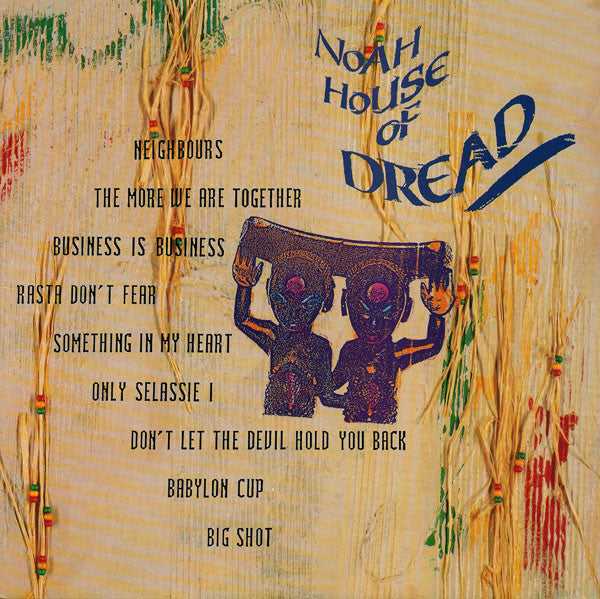 NOAH
HOUSE
OF
DREAD
NEIGHBOURS
THE MORE WE ARE TOGETHER
BUSINESS IS BUSINESS
RASTA DON'T FEAR
SOMETHING IN MY HEART
ONLY SELASSIE I
DON'T LET THE DEVIL HOLD YOU BACK
BABYLON CUP
BIG SHOT